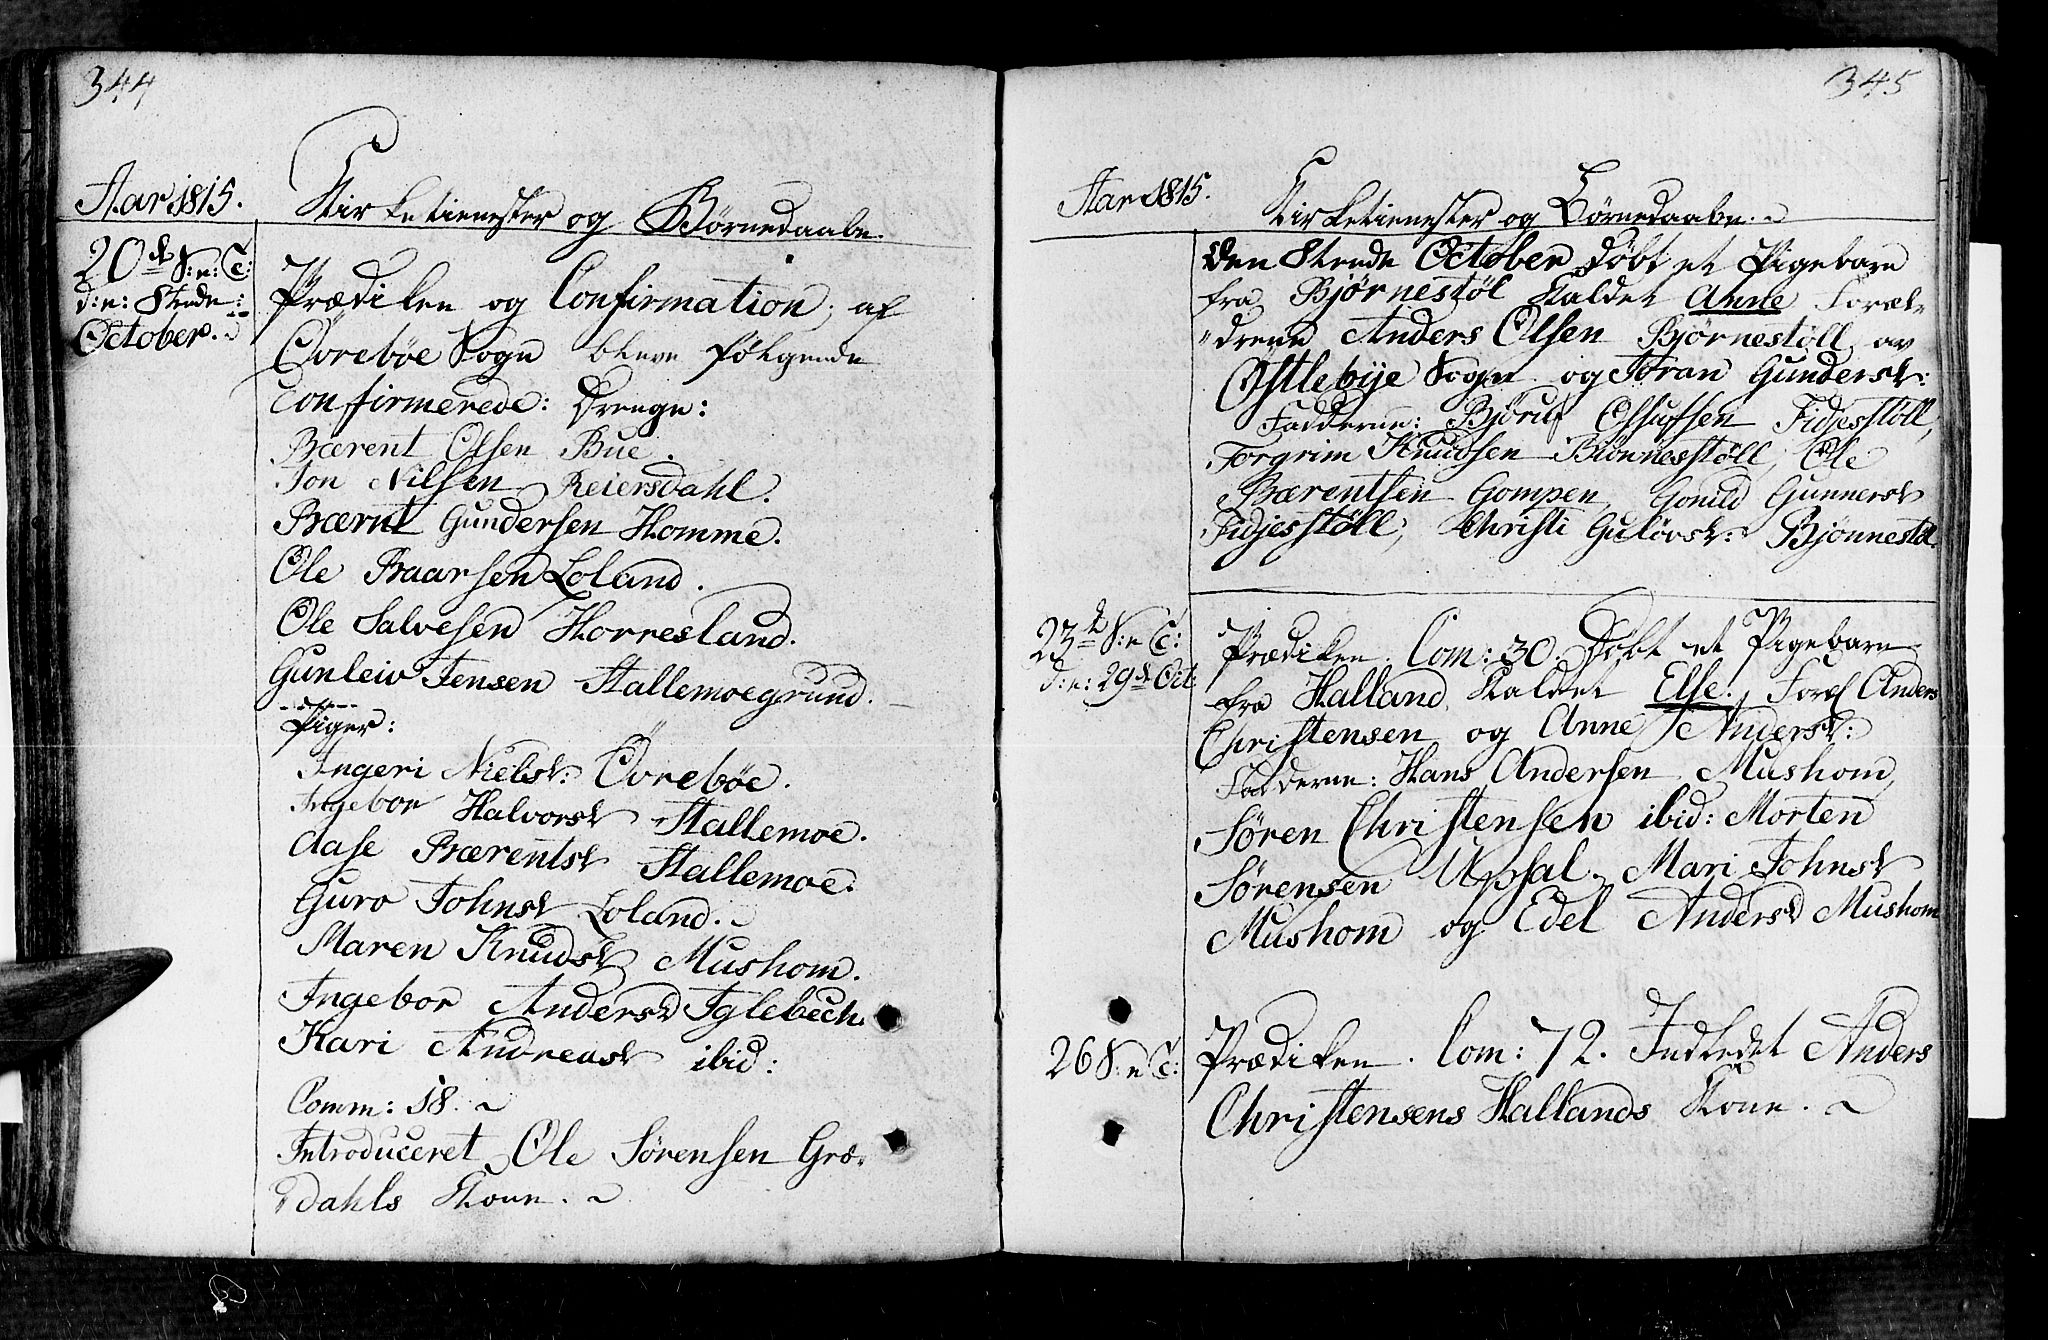 344
Aar 1815.
Kirketienester og Børnedaabe.
20de S: e: T:
d: e: 8tende
October.
Prædiken og Confirmation; af
Øvrebøe Sogn bleve følgende
Confirmerede: Drenge:
Bærent Olsen Bue.
Jon Nilsen Reiersdahl.
Bærnt Gundersen Homme.
Ole Baarsen Loland.
Ole Salvesen Horresland.
Gunleiv Jensen Stallemoegrund.
Piger:
Ingeri Nielsd: Øvrebøe.
Ingebor Halvorsd Stallemoe.
Aase Bærentsd Stallemoe.
Guro Johnsd Loland.
Maren Knudsd Mushom.
Ingebor Andersd Iglebech.
Kari Andreasd ibid:
Comm: 18.
Introduceret Ole Sørensen Græ-
dahls Kone.
345
Aar 1815.
Kirketienester og Børnedaabe.
Den 8tende October døbt et Pigebarn
fra Bjørnestøl kaldet Anne Foræl-
drene Anders Olsen Bjørnestøll av
Østlebye Sogn og Joran Gundersd:
Fadderne: Bjøru Ossufsen Fidjesstøll,
Torgrim Knudsen Biønnesstøll, Ole
Bærentsen Gompen, Gonild Gunnersd
Fidjesstøll, Christi Guløvsd: Bjønnestøl.
23d S: e T:
d: e: 29de Oct:
Prædiken. Com: 30. Døbt et Pigebarn
fra Halland kaldet Else. Foræl Anders
Christensen og Anne Andersd:
Fadderne: Hans Andersen Mushom,
Søren Christensen ibid: Morten
Sørensen Upsal. Mari Johnsd
Mushom og Edel Andersd Mushom
26 S: e T:
Prædiken. Com: 72. Indledet Anders
Christensens Hallands Kone.